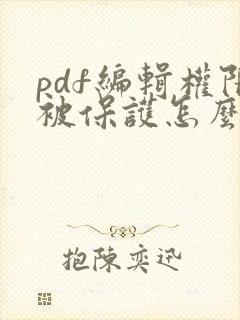 pdf編輯權限
被保護怎麼
抱陳奕迅